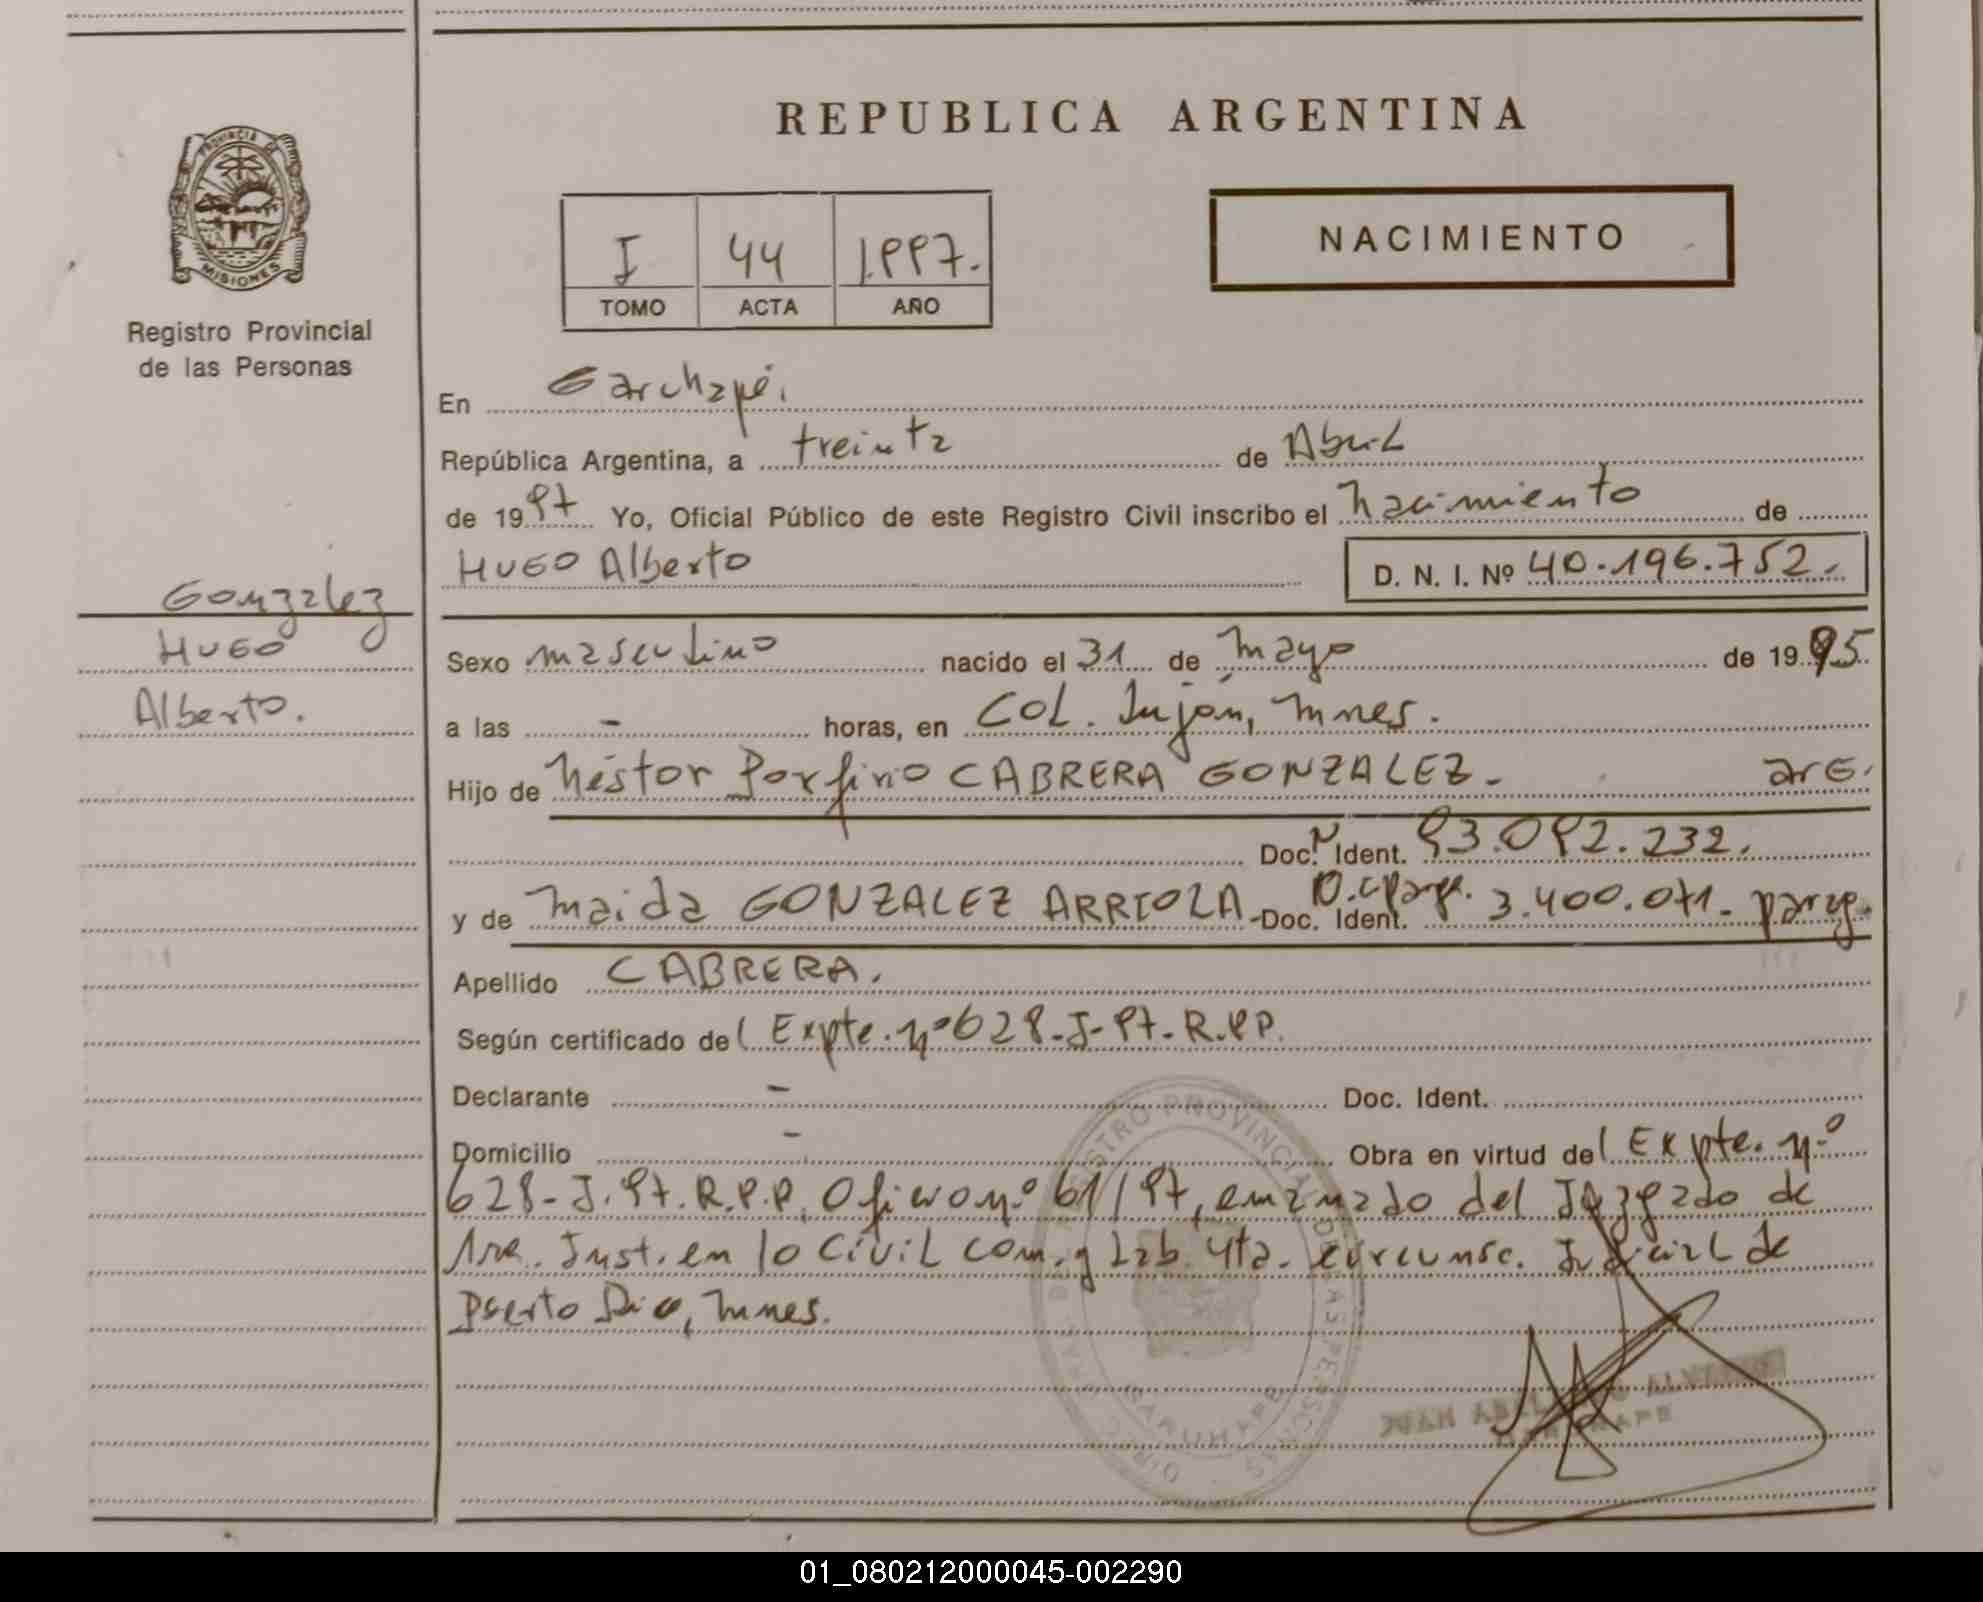 REPUBLICA ARGENTINA
PROVINCIA DE
MISIONES
Registro Provincial
de las Personas
NACIMIENTO
I 44 1.997.
TOMO ACTA AÑO
En Garuhapé.
República Argentina, a treinta de Abril
de 1997 Yo, Oficial Público de este Registro Civil inscribo el nacimiento de
HUGO Alberto D. N. I. Nº 40.196.752.
Gonzalez
HUGO
Alberto.
Sexo masculino nacido el 31 de mayo de 1995
a las - horas, en COL. Luján, Mnes.
Hijo de Néstor Porfirio CABRERA GONZALEZ. arg.
Doc. Ident. 93.092.232.
y de Maida GONZALEZ ARRIOLA Doc. Ident. 3.400.071. parag.
Apellido CABRERA.
Según certificado del Expte. nº 628-J-97-R.P.P.
Declarante - Doc. Ident.
Domicilio - Obra en virtud del Expte. nº
628-J-97.R.P.P, Oficio nº 61/97, emanado del Juzgado de
1ra. Inst. en lo Civil Com. y Lab. 4ta. circunsc. Judicial de
Puerto Rico, Mnes.
GARUHAPE
01_080212000045-002290